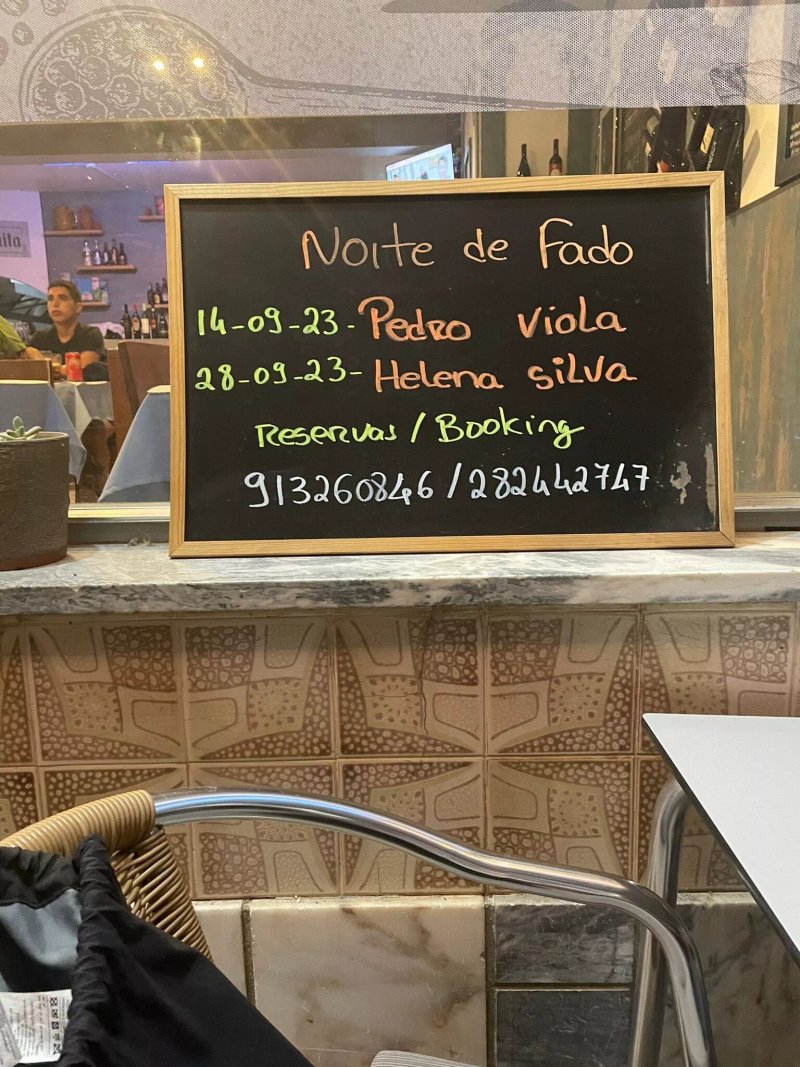 Noite de Fado
14-09-23- Pedro Viola
28-09-23- Helena Silva
Reservas / Booking
913260846 / 282442747